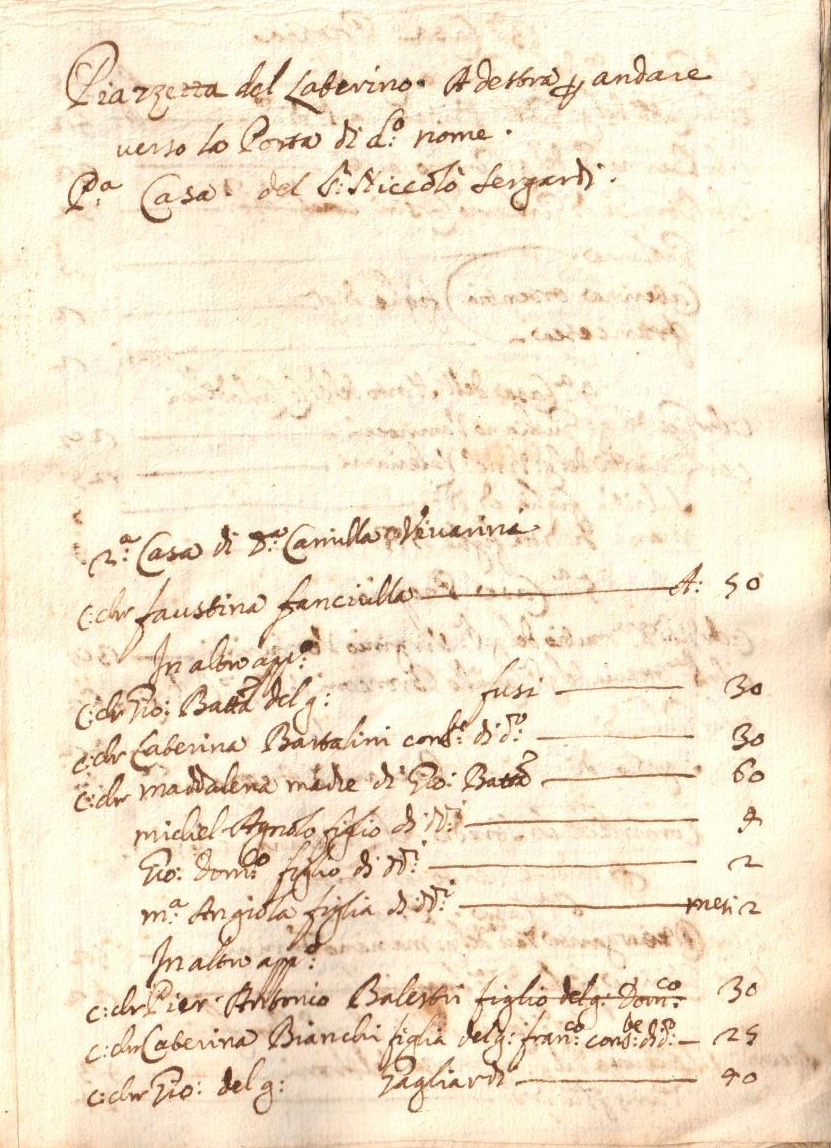 Piazzetta del Laberino. A destra p andare
verso la Porta di d.o nome.
P.a Casa del S.r Niccolò Sergardi.
2.a Casa di D.a Camilla Vivarini
C: ch faustina fanciulla A: 50
In altro app.o
C: ch Gio: Batta del q: fusi 30
C: ch Caterina Bartalini cons.e di d.o 30
C: ch Maddalena madre di Gio: Batta 60
Michel Agnolo figlio di dd.i 4
Gio: Dom.co figlio di dd.i 2
M.a Angiola figlia di dd.i mesi 2
In altro app.o
C: ch Pier Antonio Balestri figlio del q: Dom.co 30
C: ch Caterina Bianchi figlia del q: fran.co cons.e di d.o 25
C: ch Gio: del q: Gagliardi 40